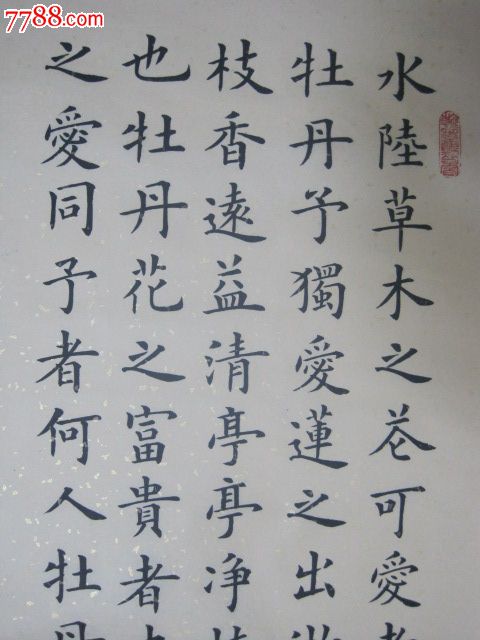 7788.com
水陸草木之花可愛者
牡丹予獨愛蓮之出
枝香遠益清亭亭净植
也牡丹花之富貴者
之愛同予者何人牡丹